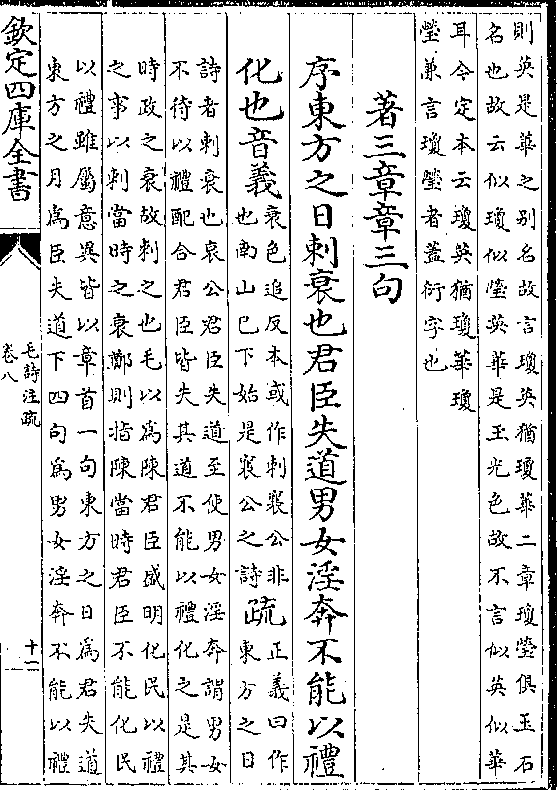 則英是華之别名故言瓊英猶瓊華二章瓊瑩俱玉石
名也故云似瓊似瑩英華是玉光色故不言似英似華
耳今定本云瓊英猶瓊華瓊
瑩兼言瓊瑩者蓋衍字也
著三章章三句
序東方之日刺衰也君臣失道男女淫奔不能以禮
化也音義
衰色追反本或作刺襄公非
也南山已下始是襄公之詩
疏
正義曰作
東方之日
詩者刺衰也哀公君臣失道至使男女淫奔謂男女
不待以禮配合君臣皆失其道不能以禮化之是其
時政之衰故刺之也毛以為陳君臣盛明化民以禮
之事以刺當時之衰鄭則指陳當時君臣不能化民
以禮雖屬意異皆以章首一句東方之日為君失道
東方之月為臣失道下四句為男女淫奔不能以禮
欽定四庫全書
毛詩注疏
卷八
十二